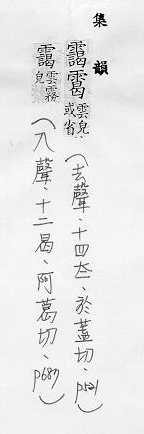 集韻
靄䨠雲皃或省(去聲、十四夳、於蓋切、p521)
靄雲霧皃(入聲、十二曷、阿葛切、p687)